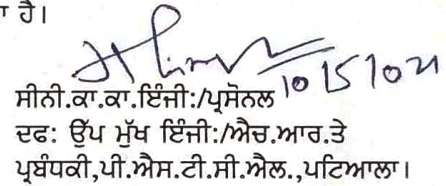 ਾ ਹੈ।
10/5/021
ਸੀਨੀ.ਕਾ.ਕਾ.ਇੰਜੀ:/ਪ੍ਰਸੋਨਲ
ਦਫ: ਉੱਪ ਮੁੱਖ ਇੰਜੀ:/ਐਚ.ਆਰ.ਤੇ
ਪ੍ਰਬੰਧਕੀ,ਪੀ.ਐਸ.ਟੀ.ਸੀ.ਐਲ.,ਪਟਿਆਲਾ।